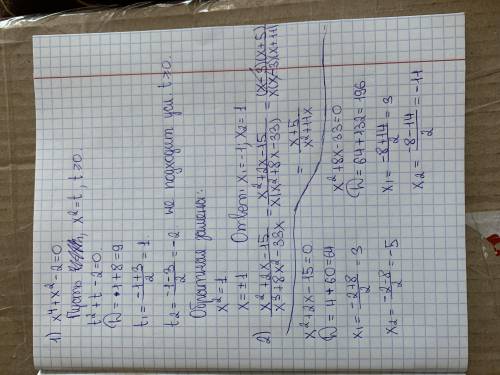 1) x⁴+x²-2=0
Пусть x²=t, t≥0.
t²+t-2=0.
D=1+8=9
t₁=(-1+3)/2=1.
t₂=(-1-3)/2=-2 не подходит усл t≥0.
Обратная замена:
x²=1
x=±1 Ответ: x₁=-1; x₂=1
2) (x²+2x-15)/(x³+8x²-33x)=(x²+2x-15)/(x(x²+8x-33))=((x-3)(x+5))/(x(x-3)(x+11))
=(x+5)/(x²+11x)
x²+2x-15=0
D=4+60=64
x₁=(-2+8)/2=3
x₂=(-2-8)/2=-5
x²+8x-33=0
D=64+132=196
x₁=(-8+14)/2=3
x₂=(-8-14)/2=-11